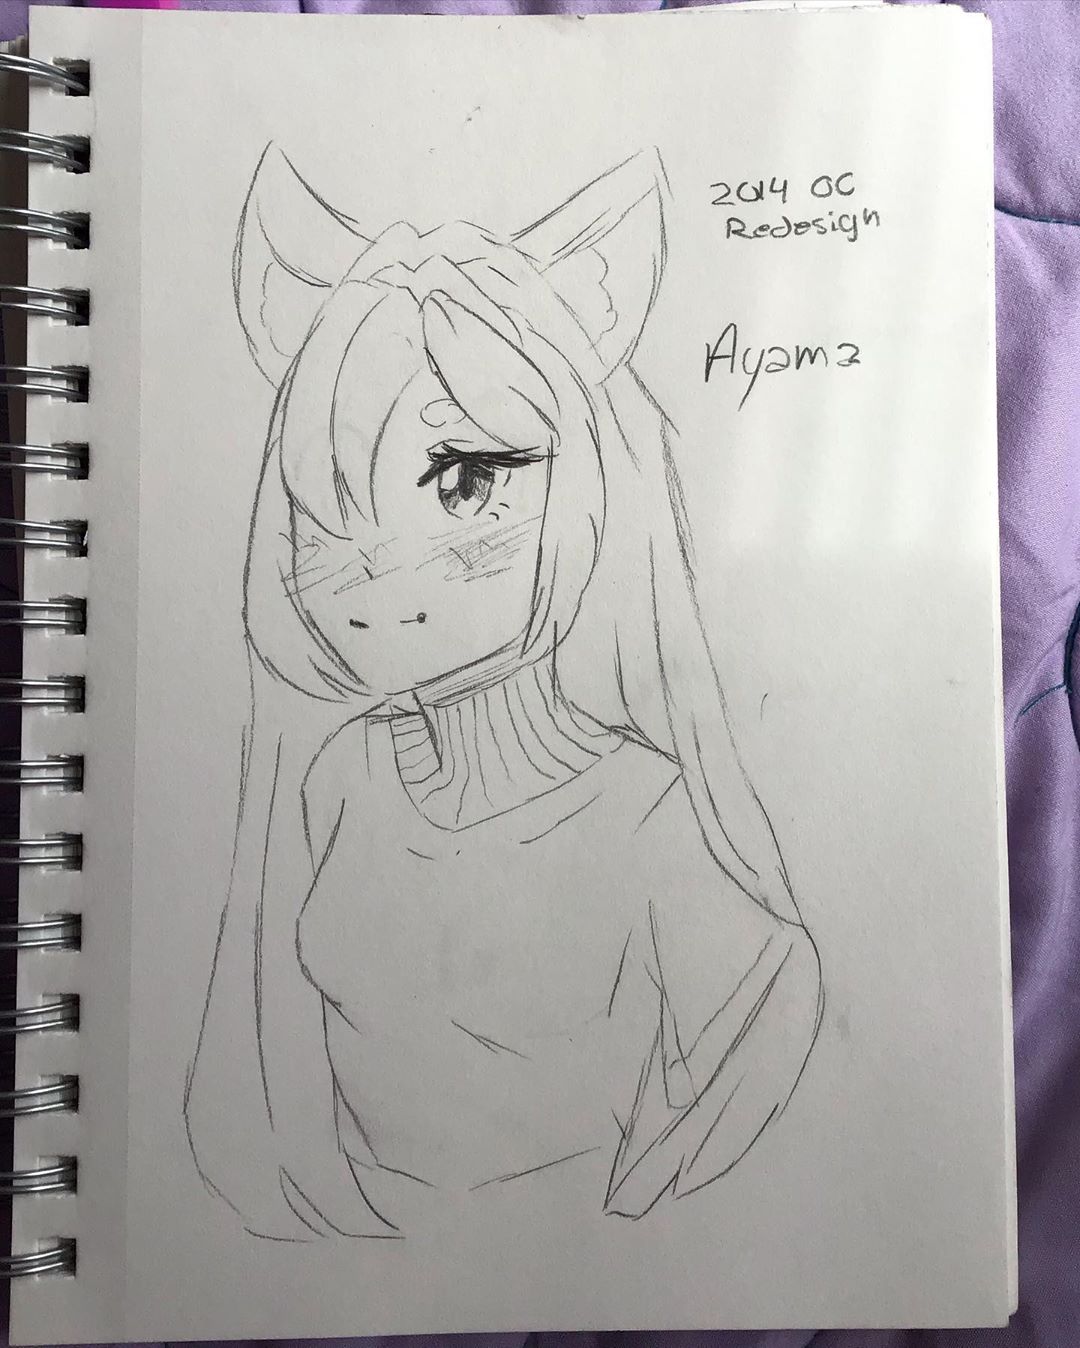 2014 OC
Redesign
Ayama